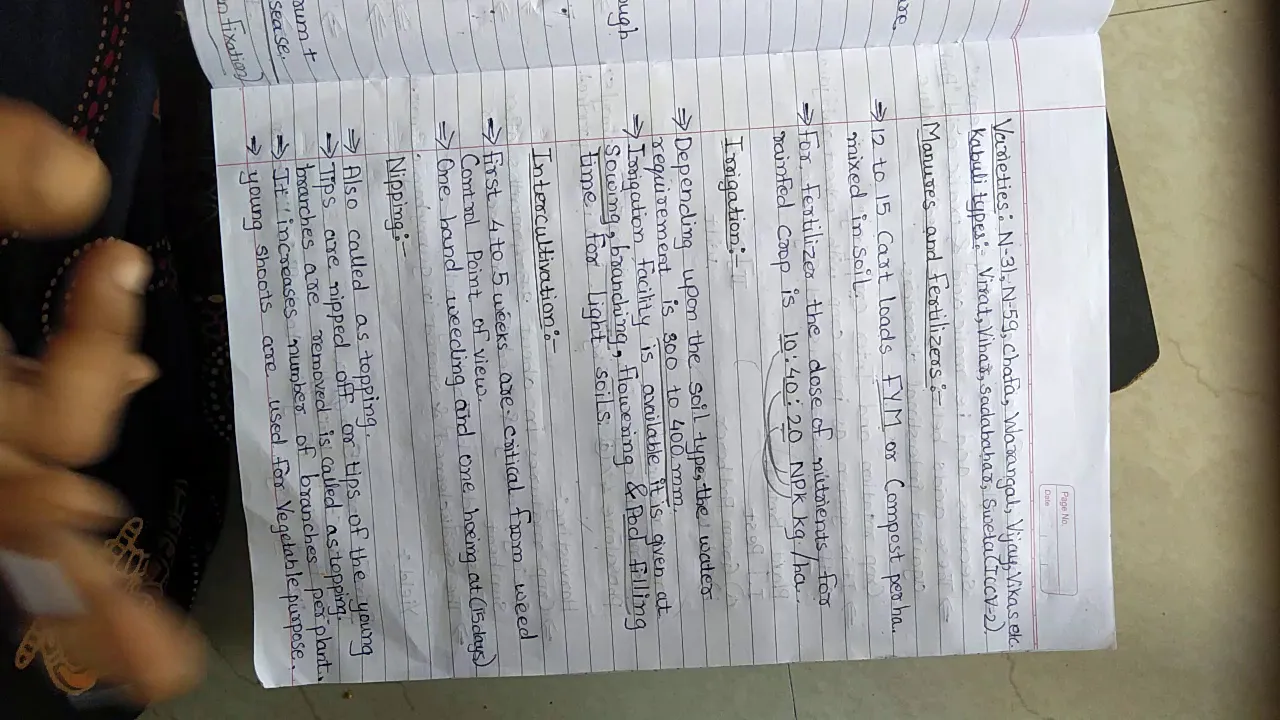 Page No.
Date
Varieties: N-31, N-59, chafa, Warangal, Vijay, Vikas etc.
Kabuli types:- Virat, Vihar, sadabahar, Sweta (ICCV-2).
Manures and Fertilizers:-
⇒ 12 to 15 Cart loads FYM or Compost per ha.
mixed in soil.
⇒ For fertilizer the dose of nutrients for
rainfed Crop is 10:40:20 NPK kg/ha.
Irrigation:-
⇒ Depending upon the soil type, the water
requirement is 300 to 400mm.
⇒ Irrigation facility is available it is given at
Sowing, branching, flowering & Pod filling
time for light soils.
Intercultivation:-
⇒ First 4 to 5 weeks are critical from weed
Control Point of view.
⇒ One hand weeding and one hoeing at (15 days)
Nipping:-
⇒ Also called as topping.
⇒ Tips are nipped off or tips of the young
branches are removed is called as topping.
⇒ It increases number of branches per plant.
⇒ young shoots are used for Vegetable purpose.
are.
ough
rum +
sease.
n fixation)